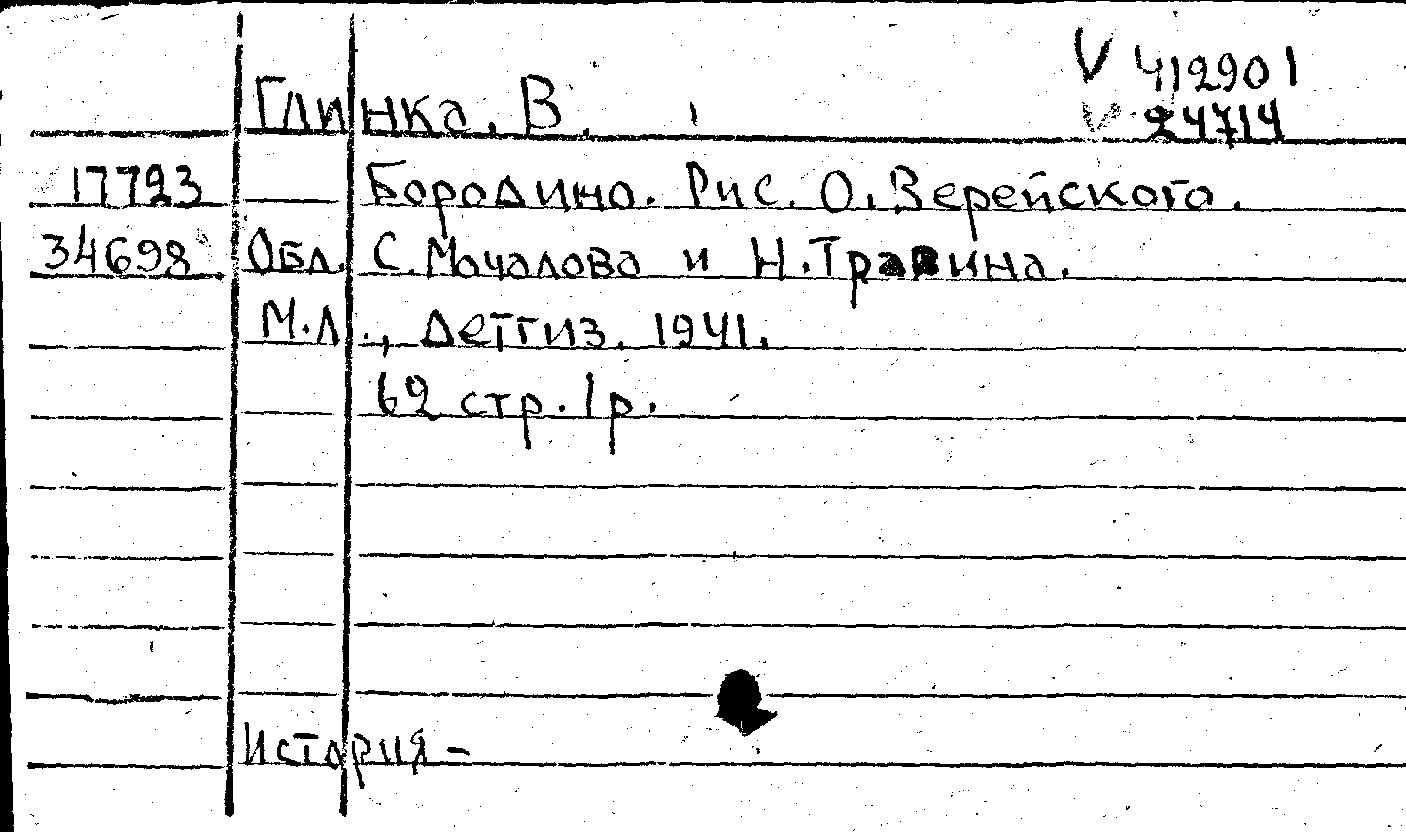 V 412901
Глинка, В. V 24714
17723 Бородино. Рис. О. Верейского.
34698 Обл. С. Мочалова и Н. Травина.
М.Л., Детгиз. 1941.
62 стр. 1р.
История –